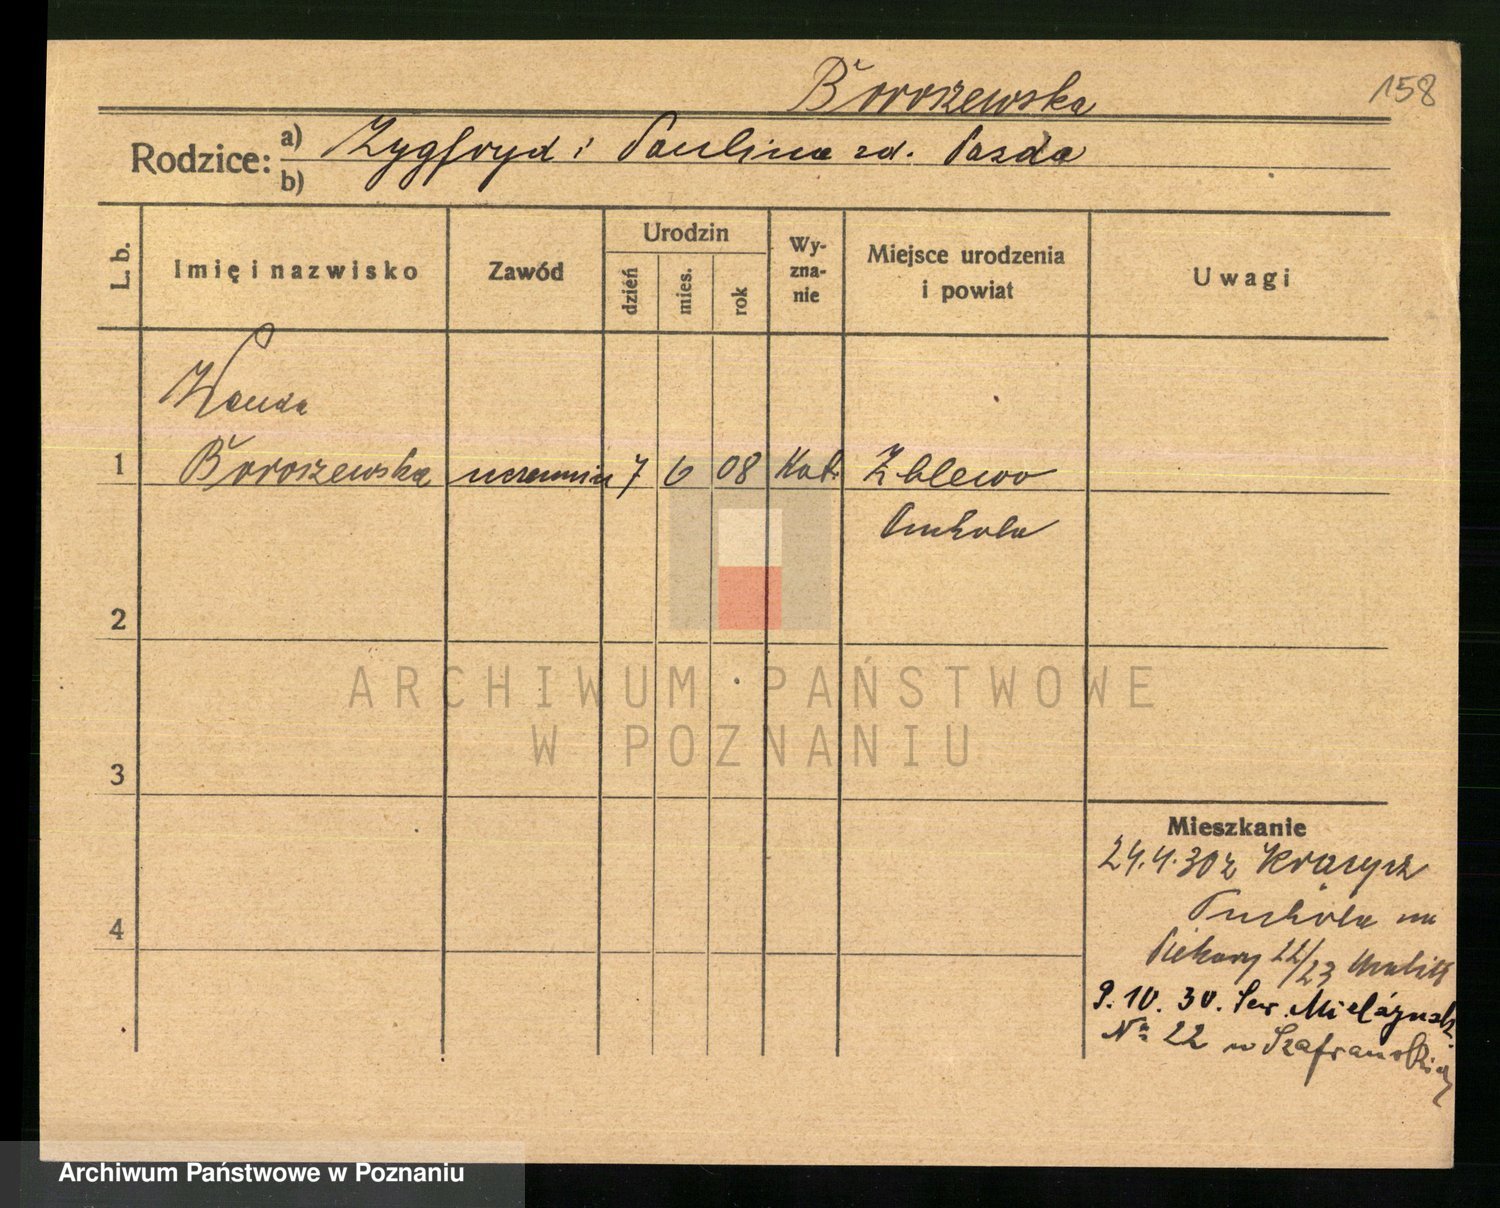 Boroszewska
158
Rodzice: a) Zygfryd i Paulina zd. Pazda
b)
L. b.
Imię i nazwisko
Zawód
Urodzin
dzień
mies.
rok
Wy-
zna-
nie
Miejsce urodzenia
i powiat
Uwagi
Wanda
1 Boroszewska uczennica 7 6 08 Kat. Zblewo
Tuchola
2
3
4
ARCHIWUM PAŃSTWOWE
W POZNANIU
Mieszkanie
24.4.30 z
Tuchola na
Piekary 22/23
9.10.30. Sew. Mielżyńsk.
Nr 22 u Szafrańskiej
Archiwum Państwowe w Poznaniu